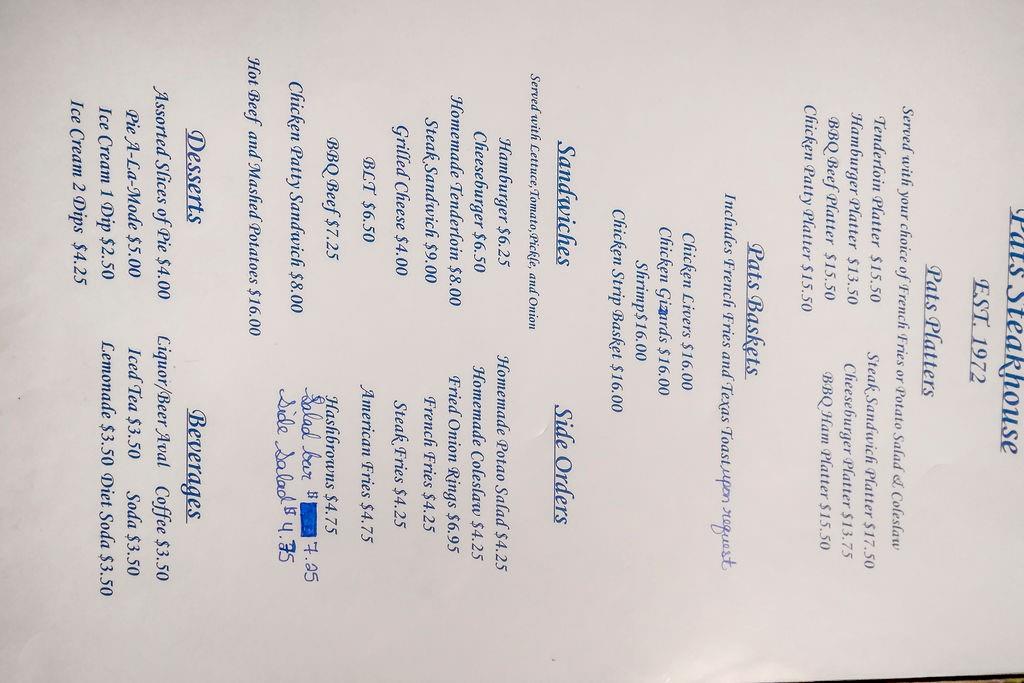 Pats Steakhouse
EST. 1972
Pats Platters
Served with your choice of French Fries or Potato Salad & Coleslaw
Tenderloin Platter $15.50
Hamburger Platter $13.50
BBQ Beef Platter $15.50
Chicken Patty Platter $15.50
Steak Sandwich Platter $17.50
Cheeseburger Platter $13.75
BBQ Ham Platter $15.50
Pats Baskets
Includes French Fries and Texas Toast upon request
Chicken Livers $16.00
Chicken Gizards $16.00
Shrimp$16.00
Chicken Strip Basket $16.00
Sandwiches
Served with Lettuce,Tomato,Pickle, and Onion
Hamburger $6.25
Cheeseburger $6.50
Homemade Tenderloin $8.00
Steak Sandwich $9.00
Grilled Cheese $4.00
BLT $6.50
BBQ Beef $7.25
Chicken Patty Sandwich $8.00
Hot Beef and Mashed Potatoes $16.00
Side Orders
Homemade Potao Salad $4.25
Homemade Coleslaw $4.25
Fried Onion Rings $6.95
French Fries $4.25
Steak Fries $4.25
American Fries $4.75
Hashbrowns $4.75
Salad bar $ 7.25
Side Salad $ 4.75
Desserts
Assorted Slices of Pie $4.00
Pie A-La-Mode $5.00
Ice Cream 1 Dip $2.50
Ice Cream 2 Dips $4.25
Beverages
Liquor/Beer Aval Coffee $3.50
Iced Tea $3.50 Soda $3.50
Lemonade $3.50 Diet Soda $3.50